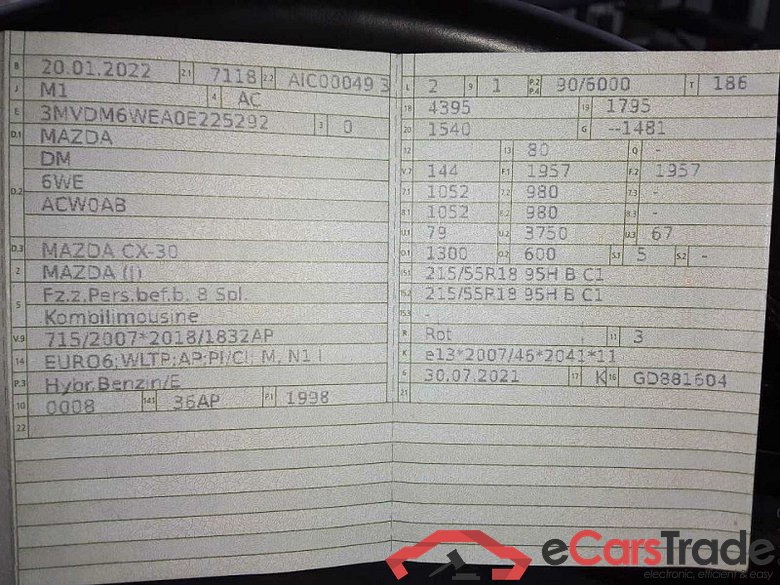 B 20.01.2022 2.1 7118 2.2 AIC00049 3
J M1 4 AC
E 3MVDM6WEA0E225292 3 0
D.1 MAZDA
DM
6WE
D.2 ACW0AB
D.3 MAZDA CX-30
2 MAZDA (J)
5 Fz.z.Pers.bef.b. 8 Spl.
Kombilimousine
V.9 715/2007*2018/1832AP
14 EURO6;WLTP;AP;PI/CI; M, N1 I
P.3 Hybr.Benzin/E
10 0008 14.1 36AP P.1 1998
22
L 2 9 1 P.2 P.4 90/6000 T 186
18 4395 19 1795
20 1540 G --1481
12 13 80 Q -
V.7 144 F.1 1957 F.2 1957
7.1 1052 7.2 980 7.3 -
8.1 1052 8.2 980 8.3 -
U.1 79 U.2 3750 U.3 67
O.1 1300 O.2 600 S.1 5 S.2 -
15.1 215/55R18 95H B C1
15.2 215/55R18 95H B C1
15.3 -
R Rot 11 3
K e13*2007/46*2041*11
6 30.07.2021 17 K 16 GD881604
21
eCarsTrade
electronic, efficient & easy